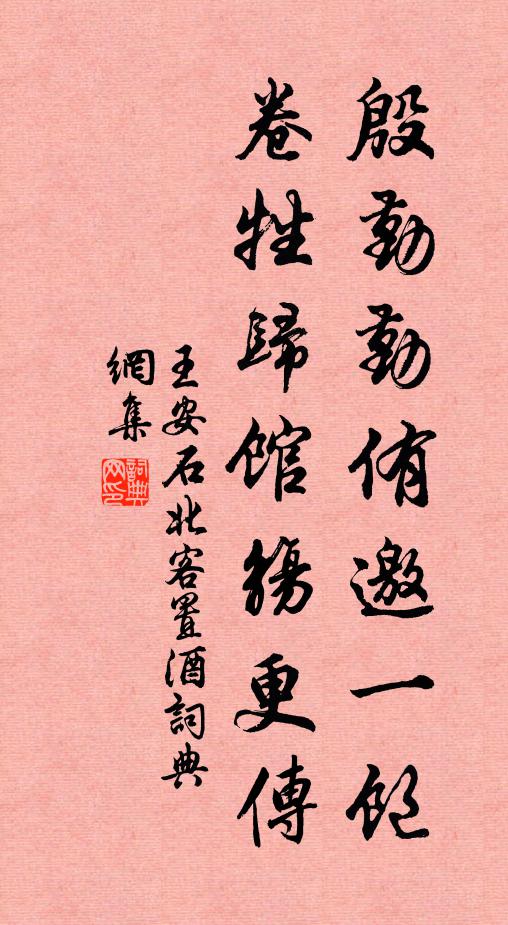 殷勤勤侑邀一飽
卷牲歸館觴更傳
王安石北客置酒詞典
網集
詞典網印